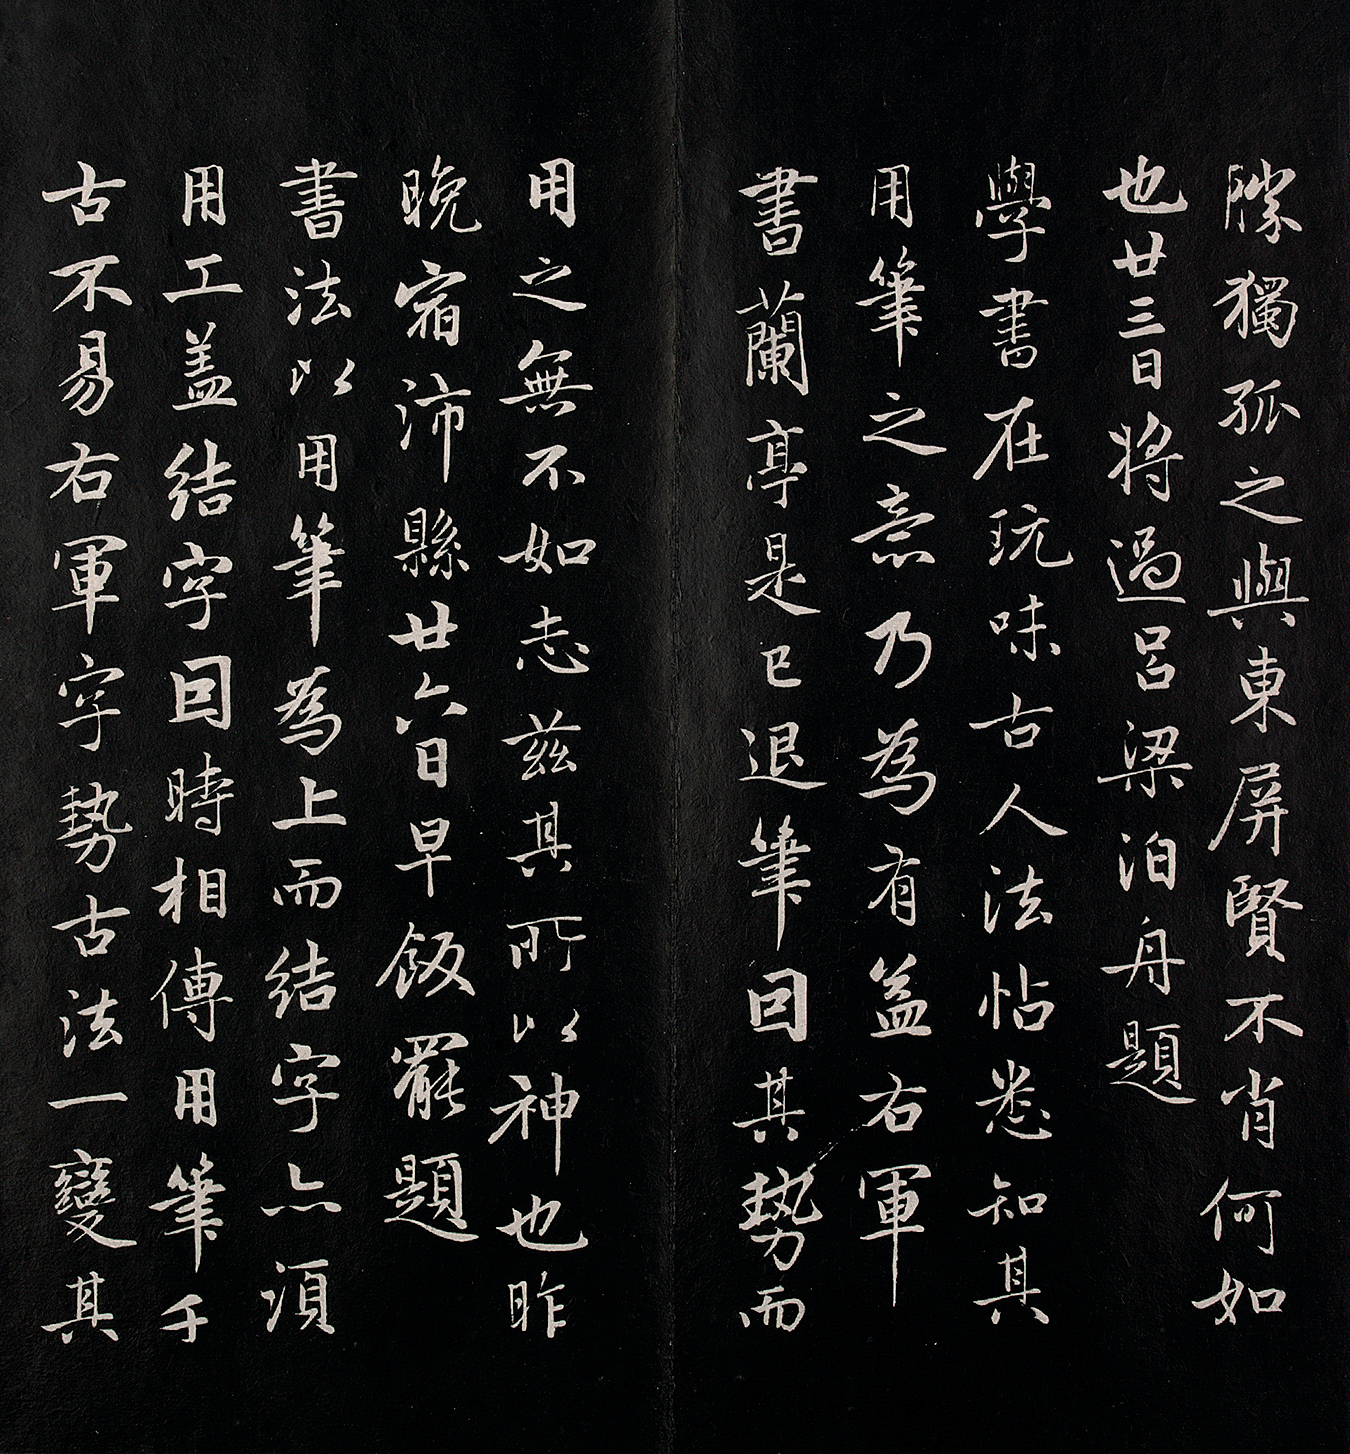 隙獨孤之與東屏賢不肖何如
也廿三日將過呂梁泊舟題
學書在玩味古人法帖悉知其
用筆之意乃為有益右軍
書蘭亭是已退筆因其勢而
用之無不如志茲其所以神也昨
晚宿沛縣廿六日早飯罷題
書法以用筆為上而結字亦須
用工盖結字因時相傳用筆千
古不易右軍字勢古法一變其